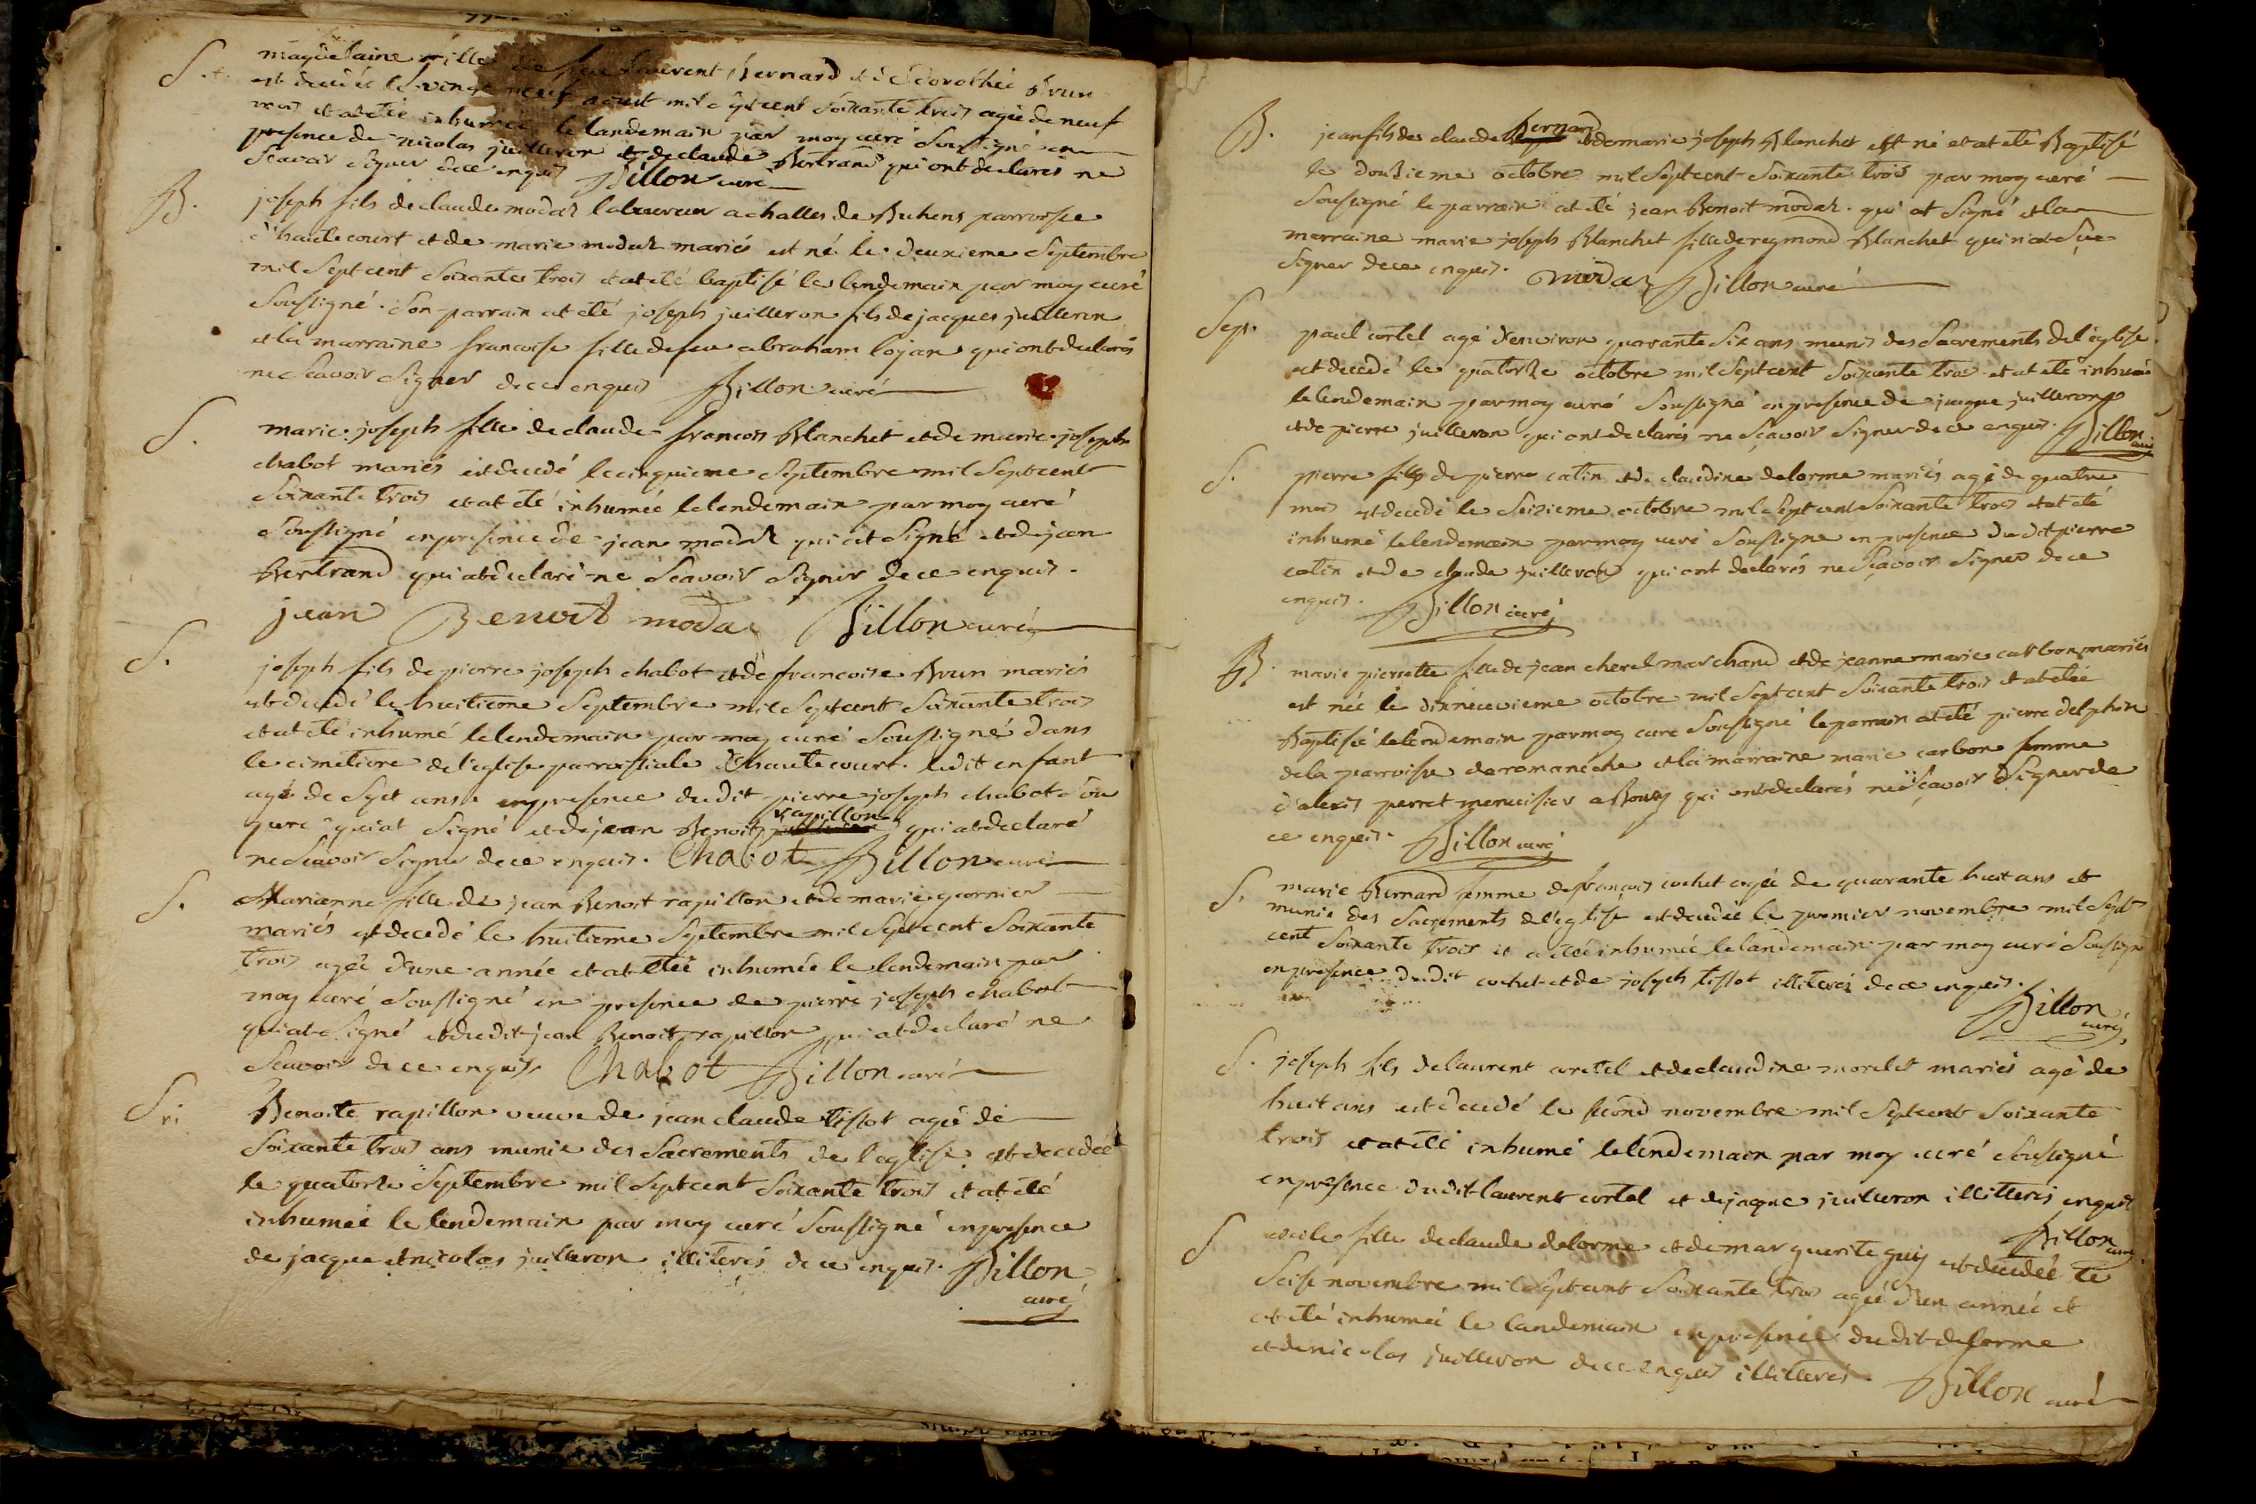 S.
magdelaine fille de feu Laurent Bernard et de Dorothée Brun
est decedée le vingt neuf aoust mil septcent soixante trois agée de neuf
mois et at eté inhumée le landemain par moy curé soussigné en
presence de nicolas juilleron et de claude Bertrand qui ont declarés ne
scavoir signer de ce enquis Billon curé
B.
joseph fils de claude modas laboureur a challes de Buhens parroisse
d'hautecourt et de marie modas mariés est né le deuxieme septembre
mil septcent soixante trois et at eté baptisé le lendemain par moy curé
soussigné. son parrain at eté joseph juilleron fils de jacques juilleron
et la marraine francoise fille de feu abraham lojan qui ont declarés
ne scavoir signer de ce enquis Billon curé
S.
marie joseph fille de claude francois Blanchet et de marie joseph
chabot mariés est decedé le cinquieme septembre mil septcent
soixante trois et at eté inhumée le lendemain par moy curé
soussigné en presence de jean modas qui at signé et de jean
Bertrand qui at declaré ne scavoir signer de ce enquis.
jean Benoit modas Billon curé
S.
joseph fils de pierre joseph chabot et de francoise Brun mariés
est decedé le huitieme septembre mil septcent soixante trois
et at eté inhumé le lendemain par moy curé soussigné dans
le cimetiere de l'eglise parroissiale d'hautecourt. ledit enfant
agé de sept ans. en presence dudit pierre joseph chabot son
pere qui at signé et de jean Benoit rapillon qui at declaré
ne scavoir signer de ce enquis. Chabot Billon curé
S.
Marianne fille de jean Benoit rapillon et de marie gornier
mariés est decedé le huitieme septembre mil septcent soixante
trois agée d'une année et at eté inhumée le lendemain par
moy curé soussigné en presence de pierre joseph chabot
qui at signé et dudit jean Benoit rapillon qui at declaré ne
scavoir de ce enquis. Chabot Billon curé
S
Benoite rapillon veuve de jean claude tissot agée de
soixante trois ans munie des sacrements de l'eglise est decedée
le quatorze septembre mil septcent soixante trois et at eté
inhumée le lendemain par moy curé soussigné en presence
de jacque et nicolas juilleron illiterés de ce enquis. Billon
curé
B.
jean fils de claude Bernard et de marie joseph Blanchet est né et at eté Baptisé
le douzieme octobre mil septcent soixante trois par moy curé
soussigné le parrain at eté jean Benoit modas. qui at signé et la
marraine marie joseph Blanchet fille de reymond Blanchet qui n'at sçu
signer de ce enquis. modas Billon curé
Sep.
paul cortel agé d'environ quarante six ans munis des sacrements de l'église.
est decedé le quatorze octobre mil septcent soixante trois et at eté inhumé
le lendemain par moy curé soussigné en presence de jacque juilleron
et de pierre juilleron qui ont declarés ne sçavoir signer de ce enquis. Billon curé
S.
pierre fils de pierre catin et de claudine delorme mariés agé de quatre
mois est decedé le seizieme octobre mil septcent soixante trois et at eté
inhumé le lendemain par moy curé soussigné en presence dudit pierre
catin et de claude juilleron qui ont declarés ne sçavoir signer de ce
enquis. Billon curé
B.
marie pierrette fille de jean cherel marchand et de jeanne marie carbon mariés
est née le dixneuvieme octobre mil septcent soixante trois et at eté
Baptisée le lendemain par moy curé soussigné le parrain at eté pierre delphin
de la parroisse de romaneche et la marraine marie carbon femme
d'alexis perret menuisier a Bourg qui ont declarés ne sçavoir signer de
ce enquis. Billon curé
S.
marie Bernard femme de francois cochet agée de quarante huit ans et
munie des sacrements de l'eglise est decedée le premier novembre mil sept
cent soixante trois et a eté inhumée le landemain par moy curé soussigné
en presence dudit cochet et de joseph tissot illiterés de ce enquis.
Billon
curé
S.
joseph fils de laurent cortel et de claudine morelet mariés agé de
huit ans est decedé le second novembre mil septcent soixante
trois et at eté inhumé le lendemain par moy curé soussigné
en presence dudit laurent cortel et de jaque juilleron illitterés enquis
Billon curé
S
cecile fille de claude delorme et de marguerite guy est decedée le
seise novembre mil septcent soixante trois agée d'un année et
at eté inhumée le landemain en presence dudit delorme
et de nicolas juilleron de ce enquis illitterés. Billon curé